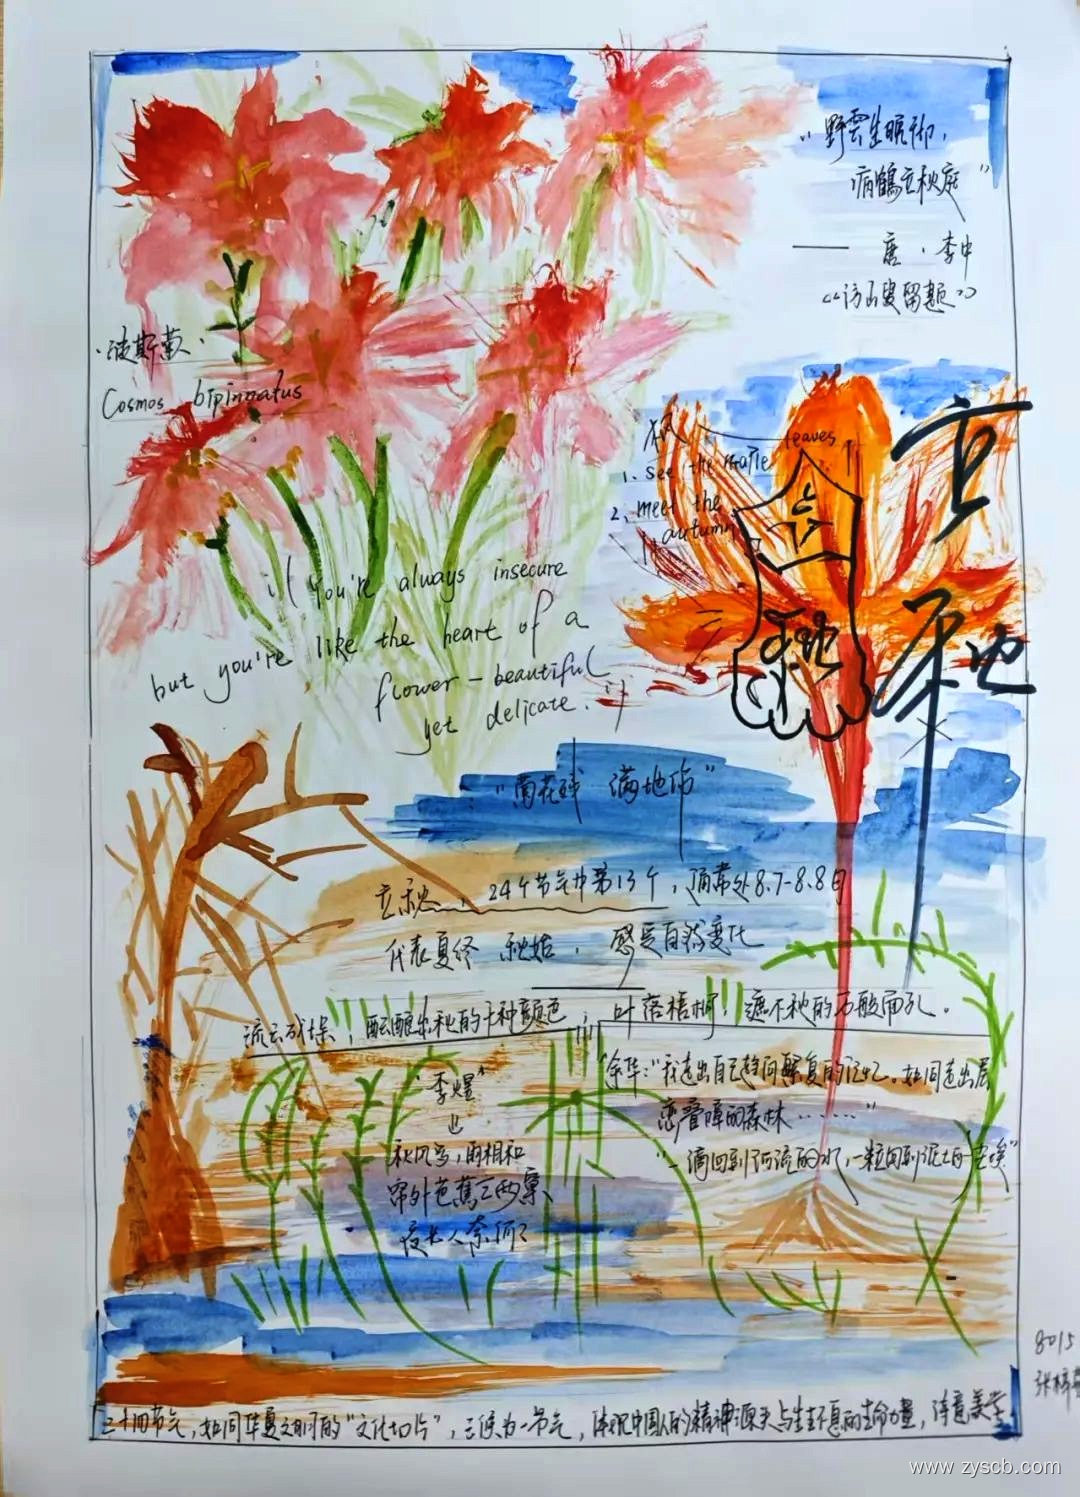 “野雲生晚砌，
病鶴立秋庭”
—— 唐·李中
《訪山叟留題》
·波斯菊·
Cosmos bipinnatus
枫 leaves
1. see the maple
2. meet the
autumn
立
秋
立
秋
if you're always insecure
but you're like the heart of a
flower - beautiful
yet delicate.
“菊花残 满地伤”
立秋，24个节气中第13个，通常处8.7-8.8日
代表夏终 秋始，感受自然变化
酝酿出秋的千种颜色；叶落梧桐，遮不秋的万般面孔。
李煜
秋风多，雨相和
帘外芭蕉三两窠、
夜长人奈何？
余华：“我遗出自己趋向繁复的记忆。如同走出层
峦叠障的森林……”
“一滴回到河流的水，一粒回到泥土的尘埃”
二十四节气，如同华夏文明的“文化切片”，三候为一节气，体现中国人的精神源头与生生不息的生命力量，诗意美学
8015
www.zyscb.com